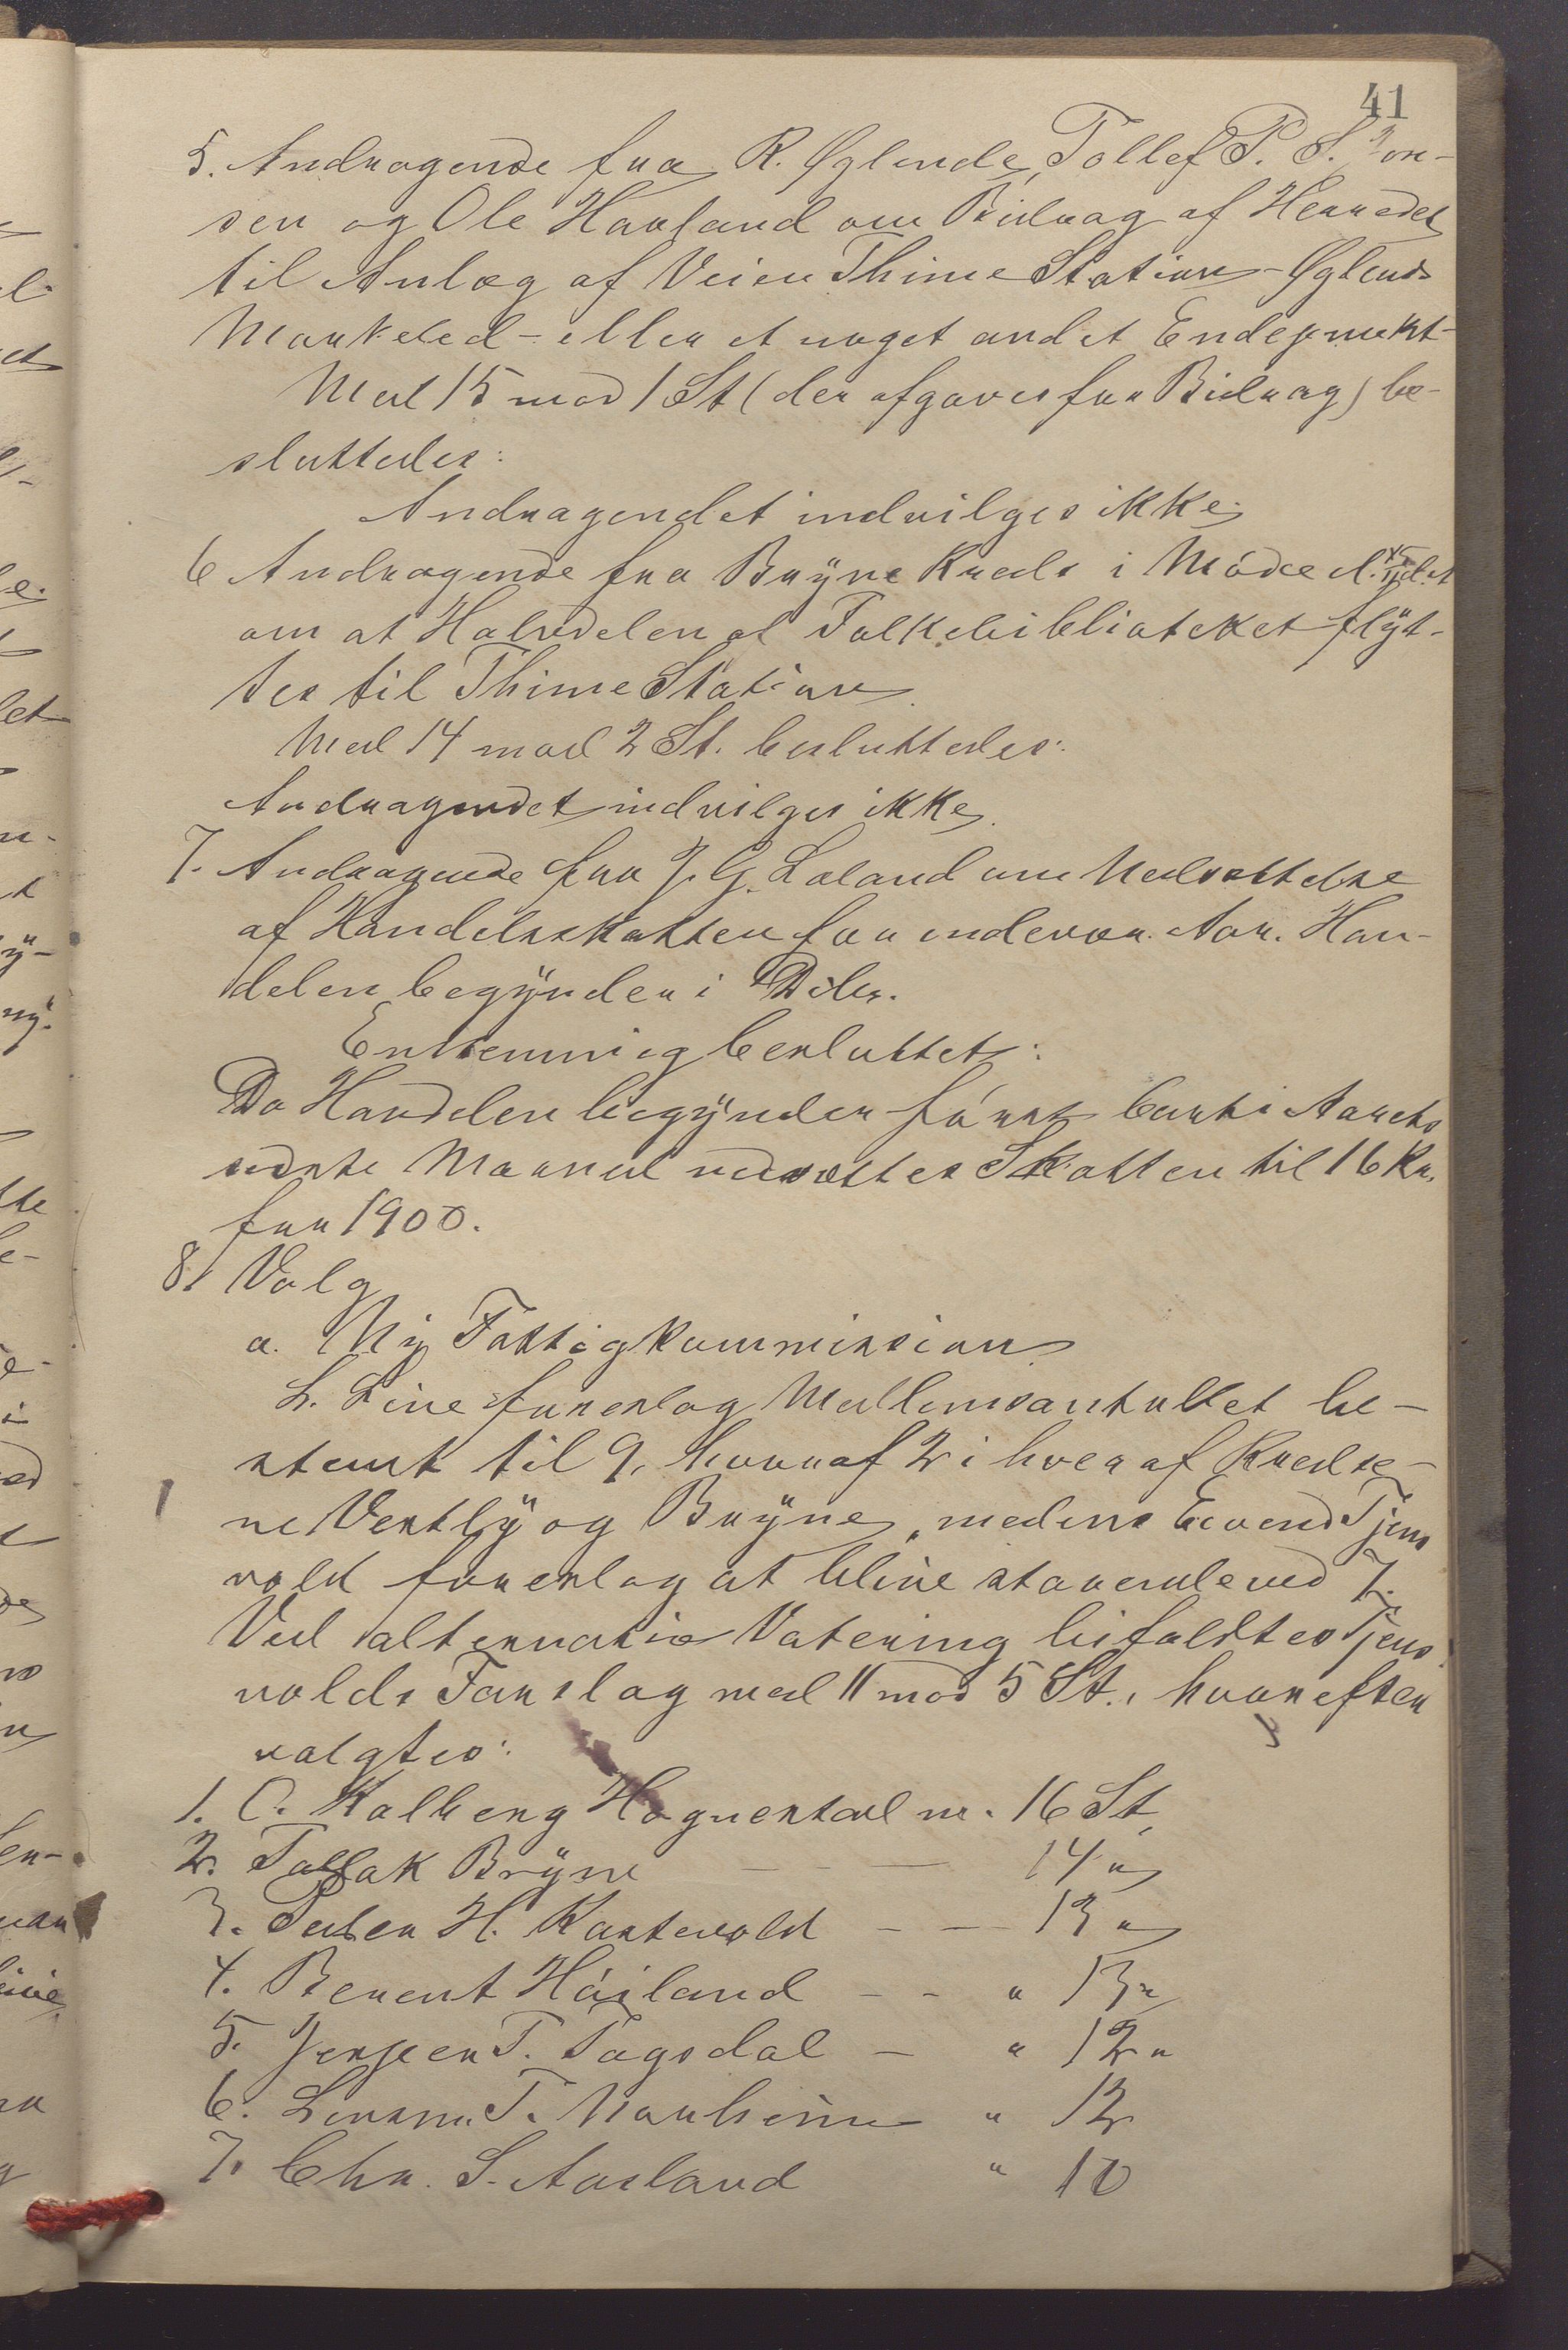 41
5. Andragende fra R. Øglende, Tollef P. S. Jon-
sen og Ole Hauland om Bidrag af Herredet
til Anlæg af Veien Thime Station - Øglends
Markeled - eller et noget andet Endepunkt -
Med 15 mod 1 St (der afgaves for Bidrag) be-
sluttedes:
Andragendet indvilges ikke.
6 Andragende fra Bryne Kreds i Møde d.
om at Halvdelen af Folkebibliateket flyt-
tes til Thime Station.
Med 14 mod 2 St. besluttedes:
Andragendet indvilges ikke.
7. Andragende fra J. G. Laland om Nedsættelse
af Handelsskatten for indevær. Aar. Han-
delen begynder i Dcbr.
Enstemmig besluttet:
Da Handelen begynder først bort i Aarets
sidste Maaned nedsættes Skatten til 16 Kr.
for 1900.
8. Valg
a. Ny Fattigkommission.
L. Line foreslog Medlemsantallet be-
stemt til 9, hvoraf 2 i hver af Kredse-
ne Vestly og Bryne, medens Eivend Tjens
vold foreslog at blive staaende ved 7.
Ved alternativ Votering bifaldtes Tjens
volds Forslag med 11 mod 5 St., hvorefter
valgtes:
1. O. Kalberg Hognestad m. 16 St.
2. Tollak Bryne - - - 14 "
3. Peder H. Kartevold - - 13 "
4. Berent Høiland - - " 13 "
5. Jesper T. Tagsdal - " 12 "
6. Lensm. T. Norheim " 12
7. Chr. S. Aasland " 10